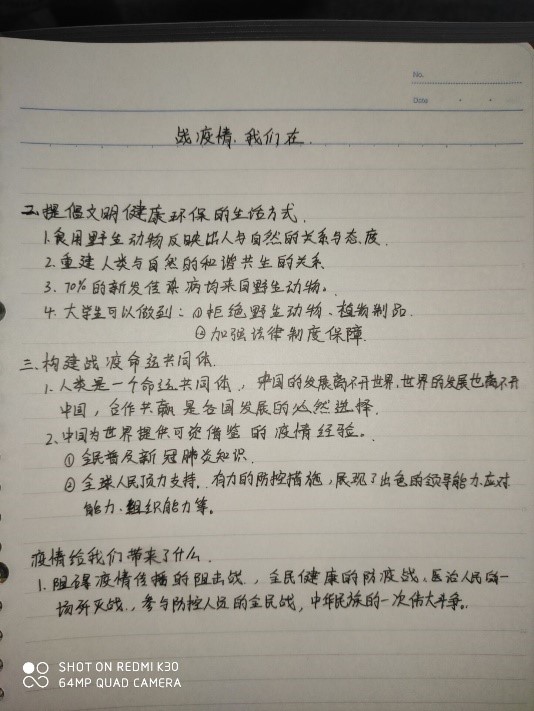 No.
Date
战疫情,我们在.
二.提倡文明健康环保的生活方式.
1.食用野生动物反映出人与自然的关系与态度.
2.重建人类与自然的和谐共生的关系
3.70%的新发传染病均来自野生动物。
4.大学生可以做到:①拒绝野生动物、植物制品.
②加强法律制度保障.
三.构建战疫命运共同体.
1.人类是一个命运共同体,中国的发展离不开世界,世界的发展也离不开
中国,合作共赢是各国发展的必然选择.
2.中国为世界提供可资借鉴的疫情经验。.
①全民普及新冠肺炎知识.
②全球人民顶力支持.有力的防控措施,展现了出色的领导能力、应对
能力、组织能力等。
疫情给我们带来了什么.
1.阻碍疫情传播的阻击战.,全民健康的防疫战、医治人民的一
场歼灭战.,参与防控人员的全民战,中华民族的一次伟大斗争。.
SHOT ON REDMI K30
64MP QUAD CAMERA